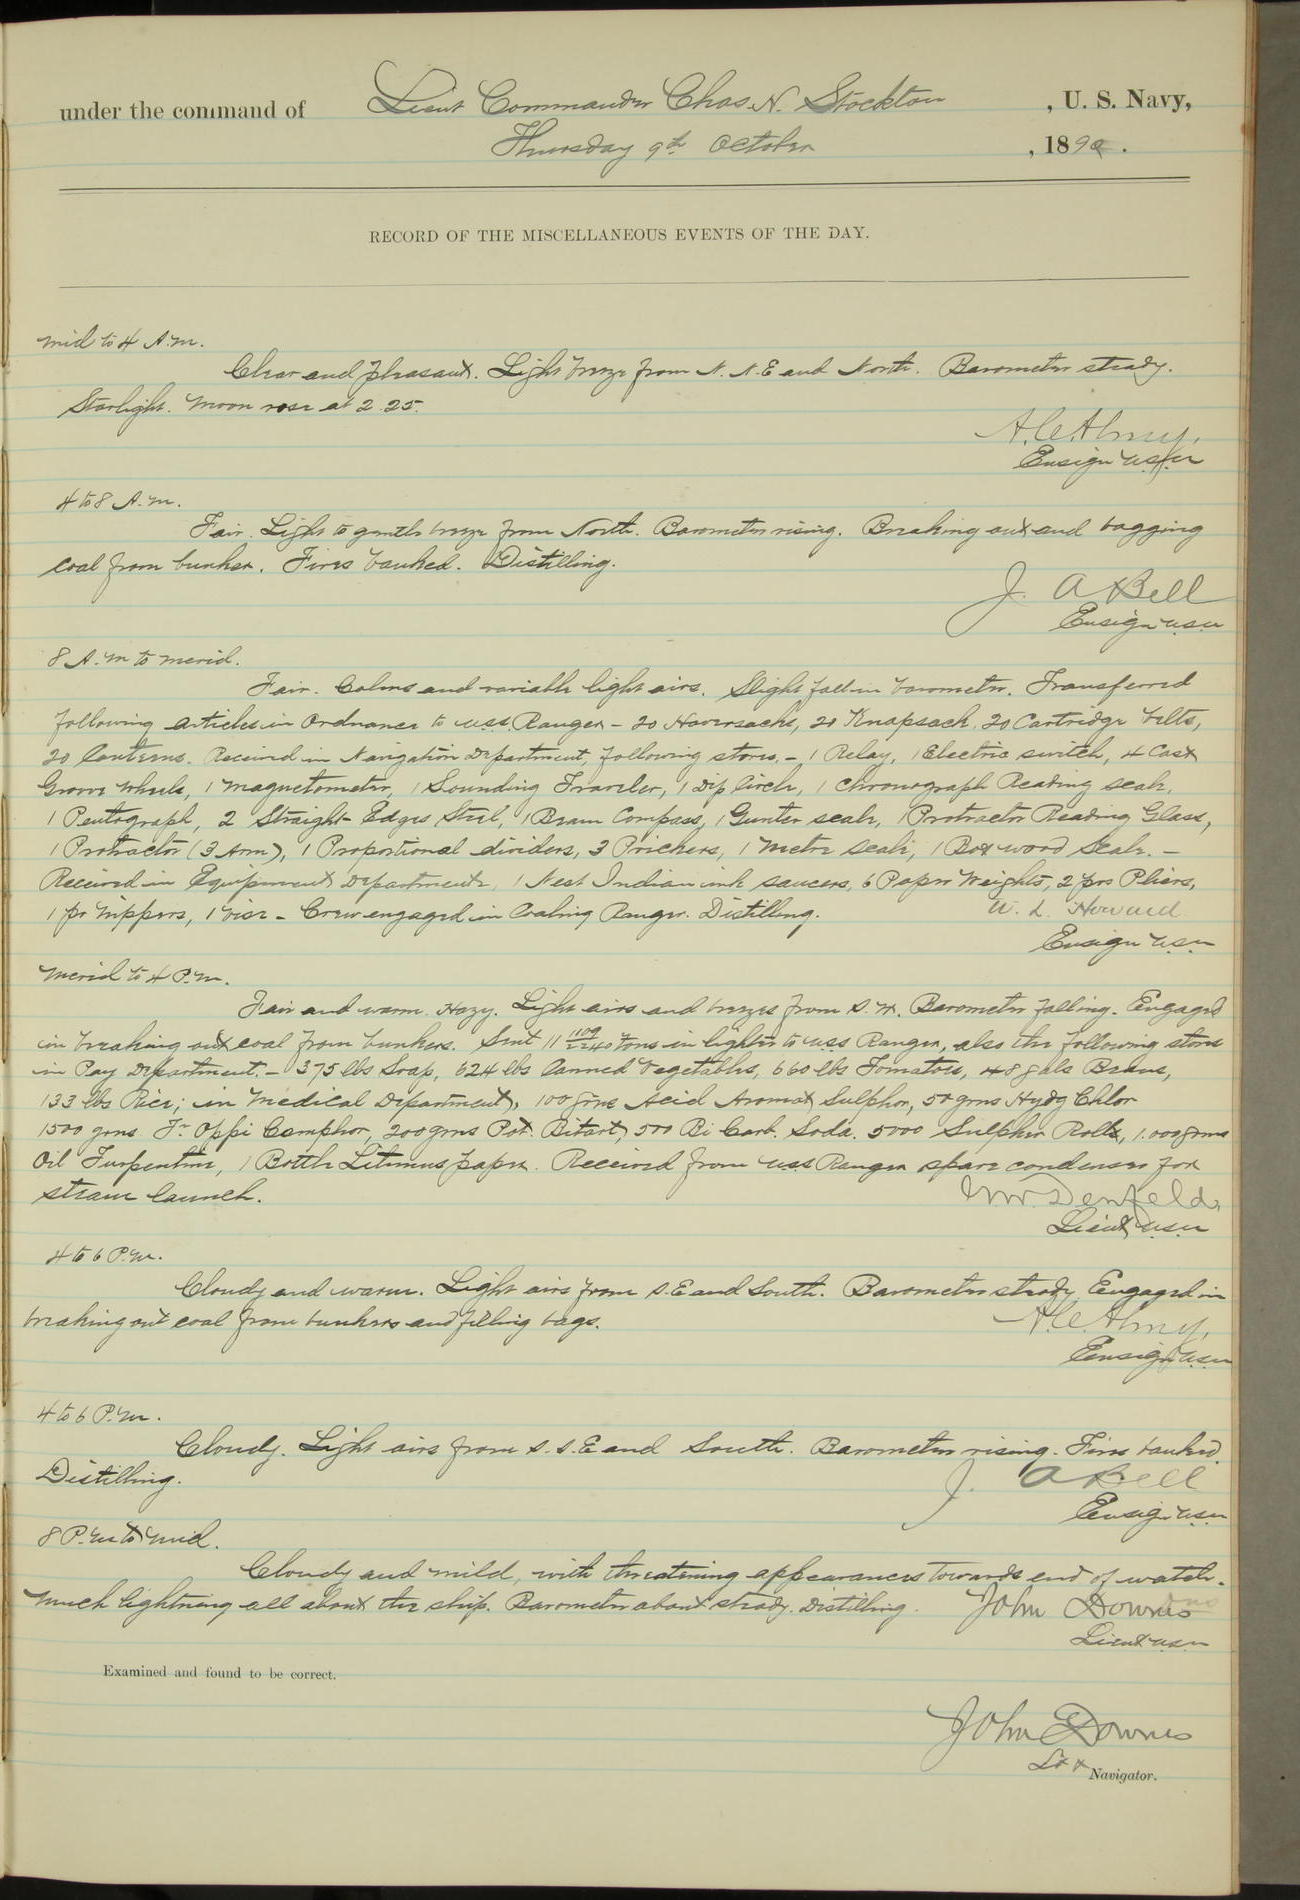 under the command of Lieut Commander Chas. N. Stockton, U. S. Navy,
Thursday 9th October, 1890.
RECORD OF THE MISCELLANEOUS EVENTS OF THE DAY.
Mid to 4 A.M.
Clear and pleasant. Light breeze from N. N. E and North. Barometer steady.
Starlight. Moon rose at 2.25.
A. C. Almy,
Ensign USN
4 to 8 A.M.
Fair. Light to gentle breeze from North. Barometer rising. Breaking out and bagging
coal from bunker. Fires banked. Distilling.
J. A Bell
Ensign USN
8 A.M to merid.
Fair. Calms and variable light airs. Slight fall in barometer. Transferred
following articles in Ordnance to U.S.S. Ranger - 20 Haversacks, 20 Knapsack, 20 Cartridge belts,
20 Canteens. Received in Navigation Department, following stores. - 1 Relay, 1 Electric switch, 4 Cast
Groove Wheels, 1 Magnetometer, 1 Sounding Traveler, 1 Dip Circle, 1 Chronograph Reading scale,
1 Pentograph, 2 Straight Edges Steel, 1 Beam Compass, 1 Gunter scale, 1 Protractor Reading Glass,
1 Protractor (3 Arm), 1 Proportional dividers, 3 Prickers, 1 Metre Scale, 1 Boxwood Scale. -
Received in Equipment Department, 1 Nest Indian ink saucers, 6 Paper Weights, 2 prs Pliers,
1 pr Nippers, 1 Vise - Crew engaged in Coaling Ranger. Distilling. W. L. Howard
Ensign USN
Merid to 4 P.M.
Fair and warm. Hazy. Light airs and breezes from S. W. Barometer falling. Engaged
in breaking out coal from bunkers. Sent 11 1109/2240 tons in lighter to USS Ranger, also the following stores
in Pay Department. - 375 lbs Soap, 624 lbs Canned Vegetables, 660 lbs Tomatoes, 48 gals Beans,
133 lbs Rice; in Medical Department, 100 grms Acid Aromat Sulphor, 50 grms Hydg Chlor
1500 grms Tr Oppi Camphor, 200 grms Pot. Bitart, 500 Bi Carb. Soda. 5000 Sulphur Rolls, 1.000 grms
Oil Turpentine, 1 Bottle Litmus paper. Received from USS Ranger spare condenser for
steam launch.
Denfeld,
Lieut USN
4 to 6 P.M.
Cloudy and warm. Light airs from S. E and South. Barometer steady. Engaged in
breaking out coal from bunkers and filling bags.
A. C. Almy,
Ensign USN
4 to 6 P.M.
Cloudy. Light airs from S. S. E and South. Barometer rising. Fires banked.
Distilling.
J. A Bell
Ensign USN
8 P.M to Mid.
Cloudy and mild, with threatening appearances towards end of watch.
Much lightning all about the ship. Barometer about steady. Distilling. John Downes
Lieut USN
Examined and found to be correct.
John Downes
Lt &
Navigator.